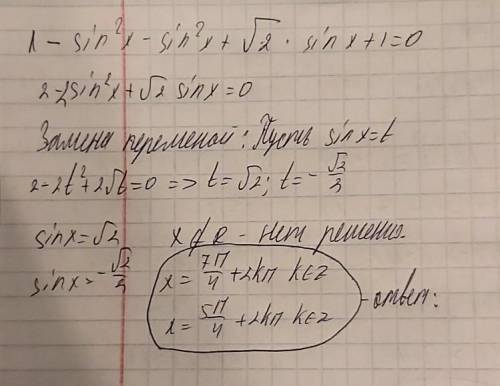 1 - sin²x - sin²x + √2 · sinx + 1 = 0
2 - 2sin²x + √2 sinx = 0
Замена переменой: Пусть sinx = t
2 - 2t² + 2√t = 0 => t = √2; t = -√2/2
sinx = √2 x ∉ R - нет решения.
sinx = -√2/2 x = 7π/4 + 2kπ k∈Z
x = 5π/4 + 2kπ k∈Z - ответ: